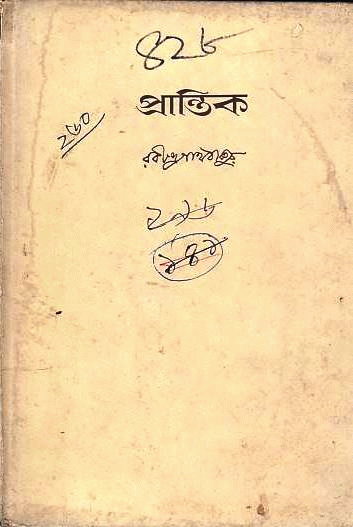 ৪২৮
প্রান্তিক
২৬০
রবীন্দ্রনাথ ঠাকুর
২৯৮